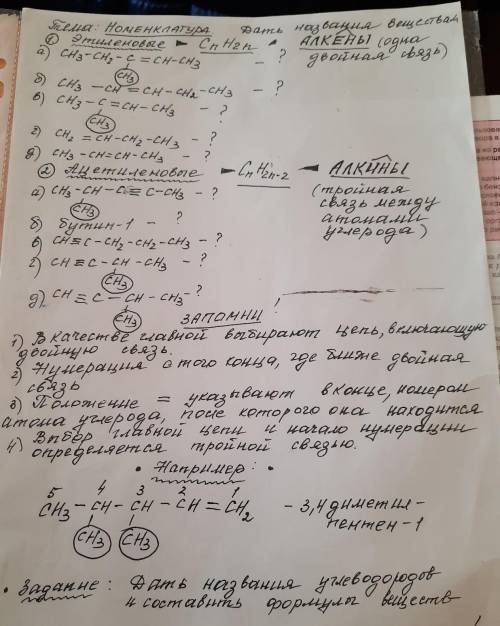 Тема: Номенклатура Дать названия веществам
① Этиленовые ► CnH2n ◄ АЛКЕНЫ (одна
двойная связь)
а) CH3-CH2-C=CH-CH3 - ?
CH3
б) CH3-CH=CH-CH2-CH3 - ?
в) CH3-C=CH-CH3 - ?
CH3
г) CH2=CH-CH2-CH3 - ?
д) CH3-CH=CH-CH3 - ?
② Ацетиленовые ► CnH2n-2 ◄ АЛКИНЫ
(тройная
связь между
атомами
углерода)
а) CH3-CH-C≡C-CH3 - ?
CH3
б) бутин-1 - ?
в) CH≡C-CH2-CH2-CH3 - ?
г) CH≡C-CH-CH3 - ?
CH3
д) CH≡C-CH-CH3 - ?
CH3
ЗАПОМНИ!
1) В качестве главной выбирают цепь, включающую
двойную связь.
2) Нумерация с того конца, где ближе двойная
связь
3) Положение = указывают в конце, номером
атома углерода, после которого она находится
4) Выбор главной цепи и начало нумерации
определяется тройной связью.
• Например: •
5 4 3 2 1
CH3-CH-CH-CH=CH2 - 3,4 диметил-
пентен-1
CH3 CH3
• Задание: Дать названия углеводородов
и составить формулы веществ